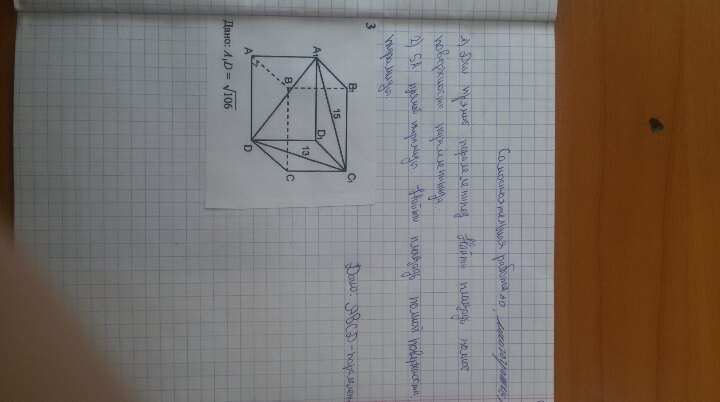 Самостоятельная работа
1) Дан прямой параллелепипед Найти площадь полной
поверхности параллелепипеда.
2) SA прямой пирамиды. Найти площадь полной поверхности
пирамиды.
Дано: ABCD-
3
B₁
C₁
15
A₁
D₁
13
B
C
A
D
Дано: A₁D = √106